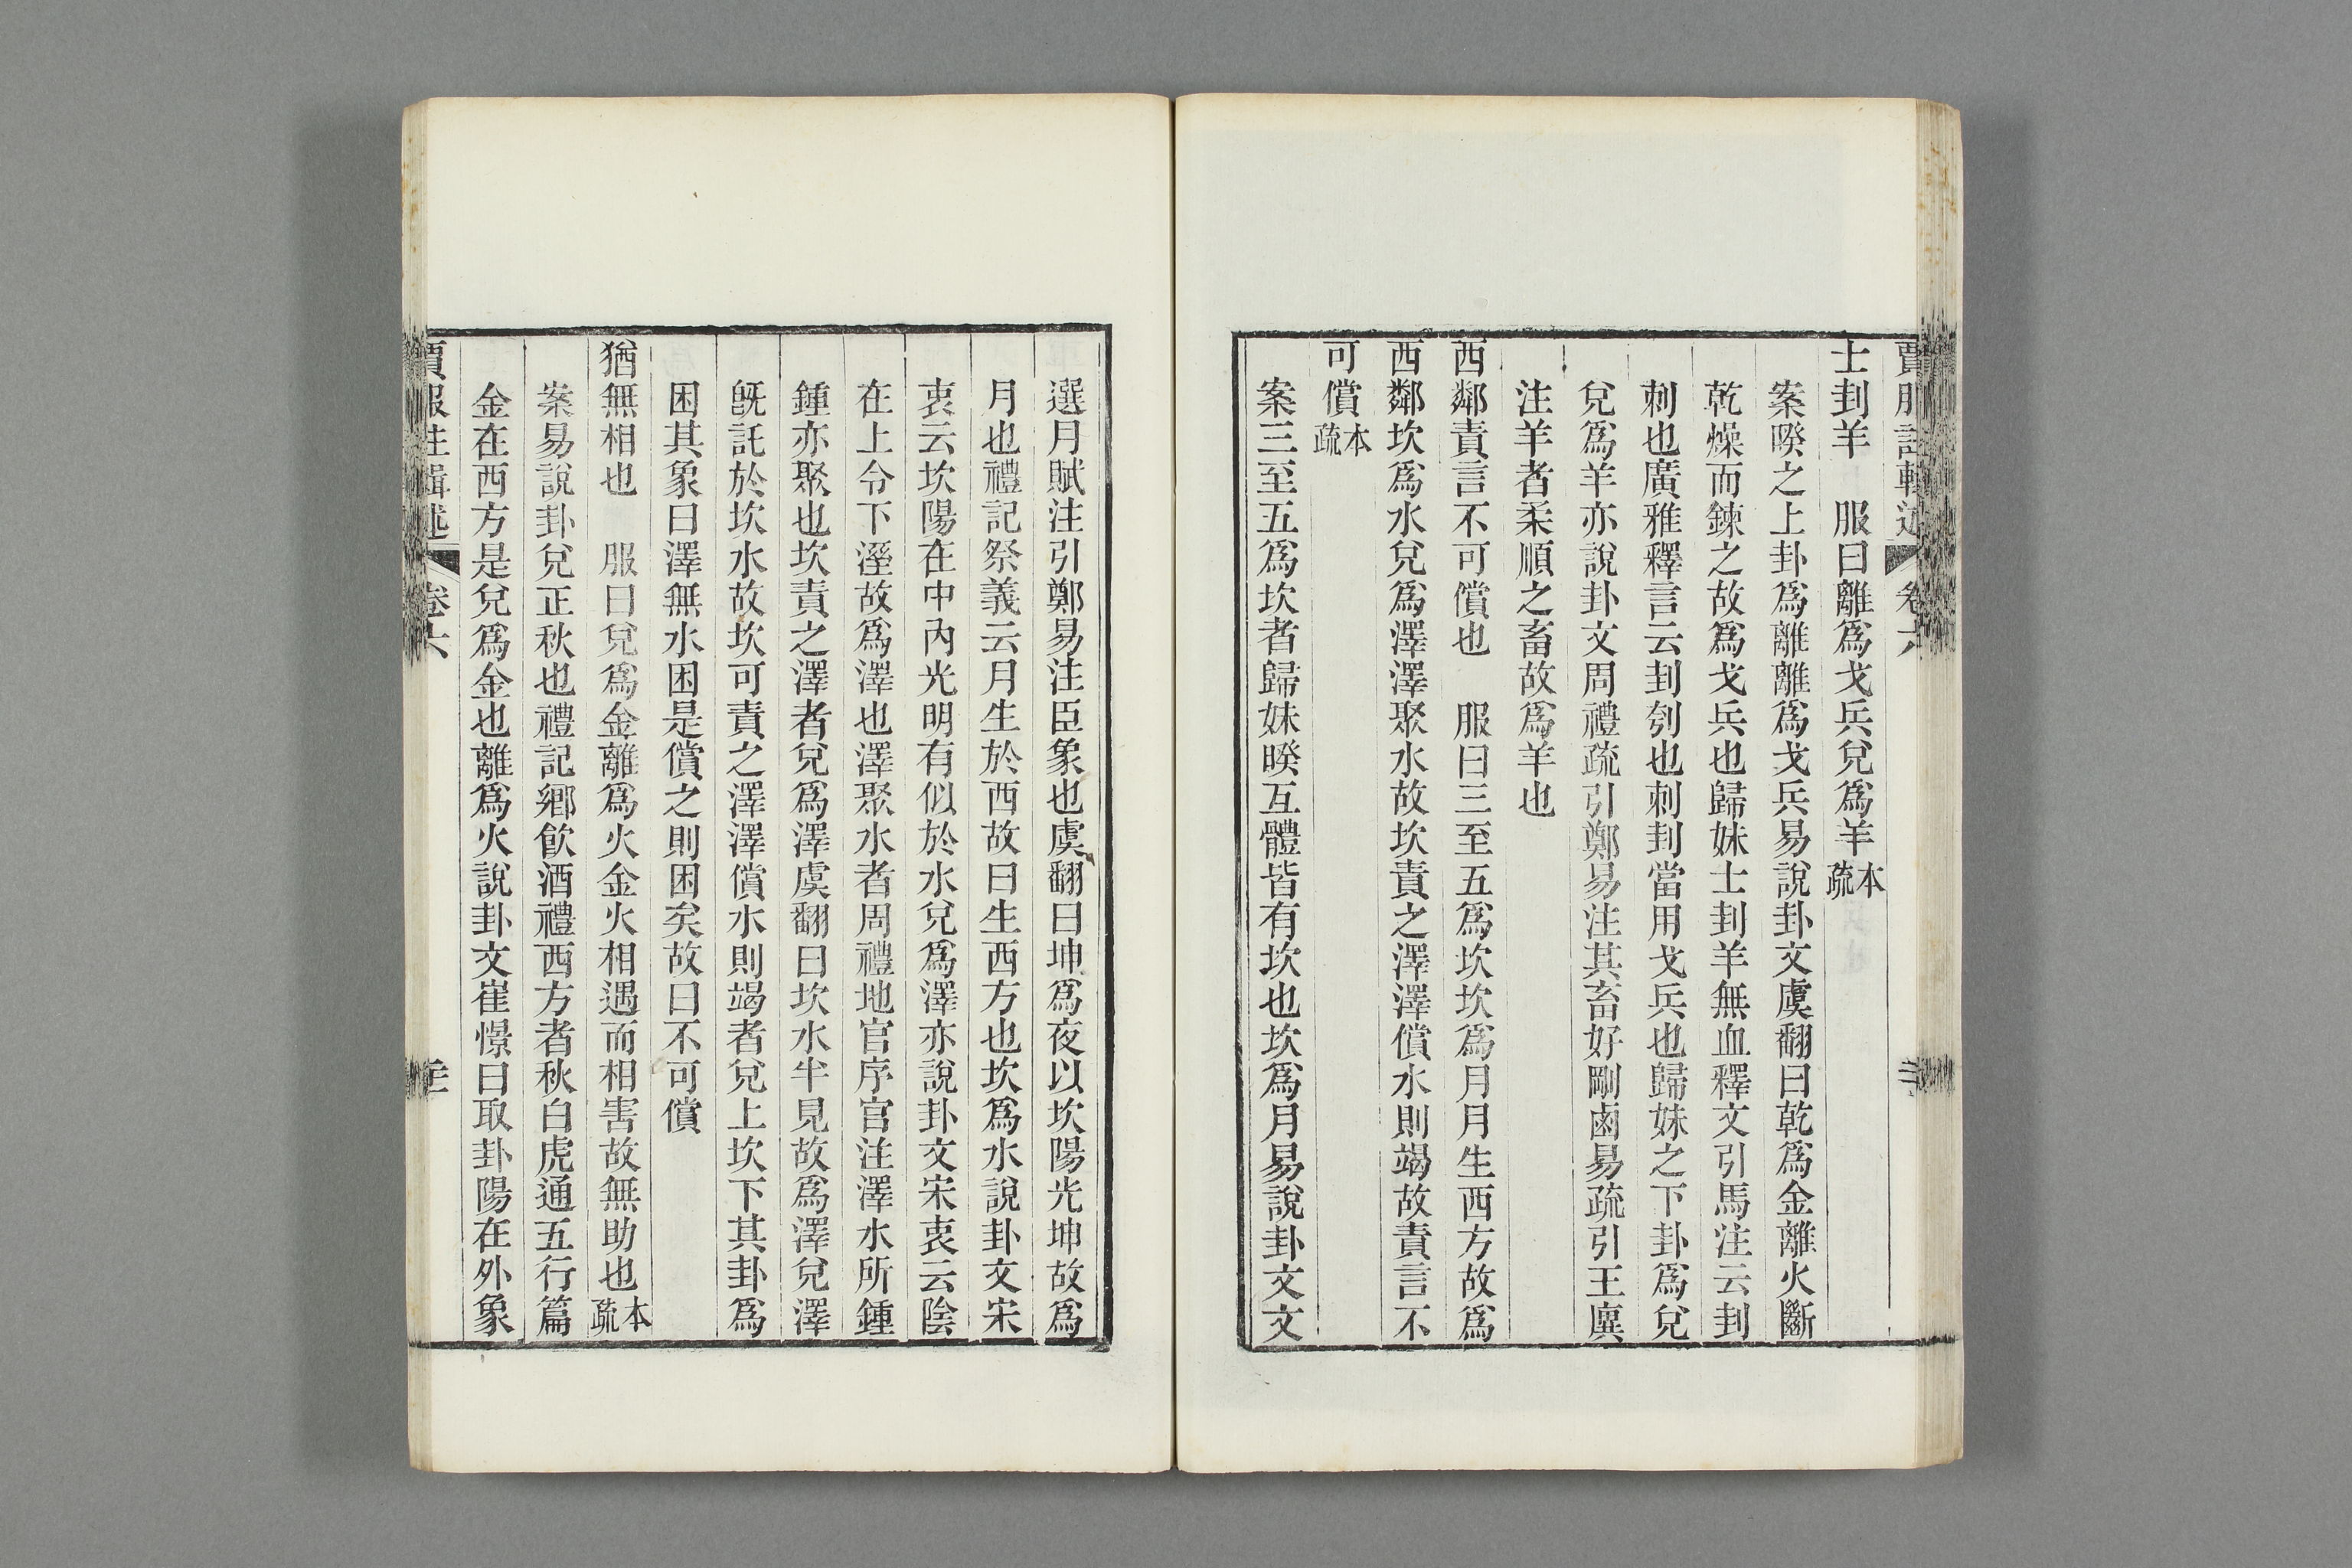 賈服注輯述 卷六
士刲羊 服曰離爲戈兵兌爲羊本疏
案睽之上卦爲離離爲戈兵易說卦文虞翻曰乾爲金離火斷
乾燥而鍊之故爲戈兵也歸妹士刲羊無血釋文引馬注云刲
刺也廣雅釋言云刲刳也刺刲當用戈兵也歸妹之下卦爲兌
兌爲羊亦說卦文周禮疏引鄭易注其畜好剛鹵易疏引王廙
注羊者柔順之畜故爲羊也
西鄰責言不可償也 服曰三至五爲坎坎爲月月生西方故爲
西鄰坎爲水兌爲澤澤聚水故坎責之澤澤償水則竭故責言不
可償本疏
案三至五爲坎者歸妹睽互體皆有坎也坎爲月易說卦文文
選月賦注引鄭易注臣象也虞翻曰坤爲夜以坎陽光坤故爲
月也禮記祭義云月生於西故曰生西方也坎爲水說卦文宋
衷云坎陽在中內光明有似於水兌爲澤亦說卦文宋衷云陰
在上令下溼故爲澤也澤聚水者周禮地官序官注澤水所鍾
鍾亦聚也坎責之澤者兌爲澤虞翻曰坎水半見故爲澤兌澤
旣託於坎水故坎可責之澤澤償水則竭者兌上坎下其卦爲
困其象曰澤無水困是償之則困矣故曰不可償
猶無相也 服曰兌爲金離爲火金火相遇而相害故無助也本疏
案易說卦兌正秋也禮記鄉飮酒禮西方者秋白虎通五行篇
金在西方是兌爲金也離爲火說卦文崔憬曰取卦陽在外象
賈服注輯述 卷六